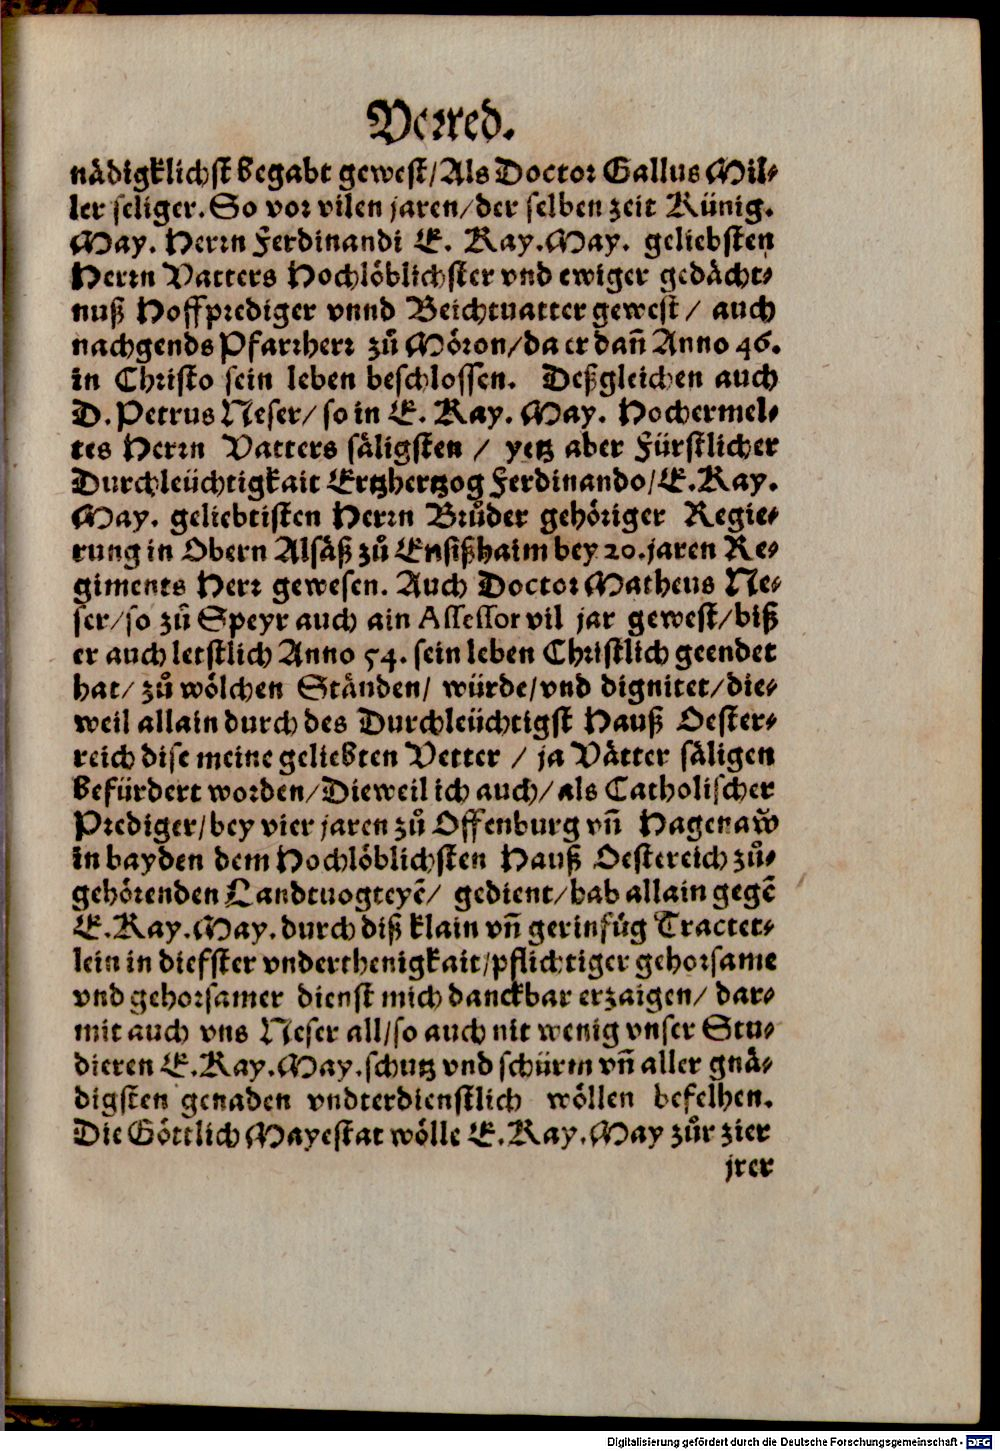 Vorred.
nädigklichst begabt gewest/Als Doctor Gallus Mil⸗
ler seliger. So vor vilen jaren/der selben zeit Künig.
May. Herrn Ferdinandi E. Kay. May. geliebsten
Herrn Vatters Hochlöblichster vnd ewiger gedächt⸗
nuß Hoffprediger vnnd Beichtuatter gewest / auch
nachgends Pfarrherr zů Möron/da er dañ Anno 46.
in Christo sein leben beschlossen. Deßgleichen auch
D. Petrus Neser/ so in E. Kay. May. Hochermel⸗
tes Herrn Vatters säligsten / yetz aber Fürstlicher
Durchleüchtigkait Ertzhertzog Ferdinando/E. Kay.
May. geliebtisten Herrn Brůder gehöriger Regie⸗
rung in Obern Alsäß zů Ensißhaim bey 20. jaren Re⸗
giments Herr gewesen. Auch Doctor Matheus Ne⸗
ser/so zů Speyr auch ain Assessor vil jar gewest/biß
er auch letstlich Anno 54. sein leben Christlich geendet
hat/ zů wölchen Ständen/ würde/vnd dignitet/die⸗
weil allain durch des Durchleüchtigst Hauß Oester⸗
reich dise meine geliebten Vetter / ja Vätter säligen
befürdert worden/Dieweil ich auch/als Catholischer
Prediger/bey vier jaren zů Offenburg vñ Hagenaw̃
in bayden dem Hochlöblichsten Hauß Oestereich zů⸗
gehörenden Landtuogteyẽ/ gedient/hab allain gegẽ
E. Kay. May. durch diß klain vñ gerinfüg Tractet⸗
lein in diefster vnderthenigkait/pflichtiger gehorsame
vnd gehorsamer dienst mich danckbar erzaigen/ dar⸗
mit auch vns Neser all/so auch nit wenig vnser Stu⸗
dieren E. Kay. May. schutz vnd schürm vñ aller gnä⸗
digsten genaden vndterdienstlich wöllen befelhen.
Die Göttlich Mayestat wölle E. Kay. May zůr zier
jrer
Digitalisierung gefördert durch die Deutsche Forschungsgemeinschaft - DFG